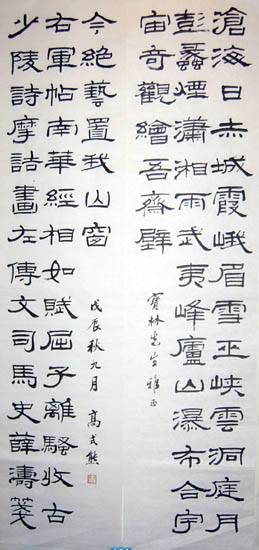 滄海日赤城霞峨眉雪巫峽雲洞庭月
彭蠡煙瀟湘雨武夷峰廬山瀑布合宇
宙奇觀繪吾齋壁
寶林先生雅正
少陵詩摩詰畫左傳文司馬史薛濤箋
右軍帖南華經相如賦屈子離騷收古
今絕藝置我山窗
戊辰秋九月 高式熊